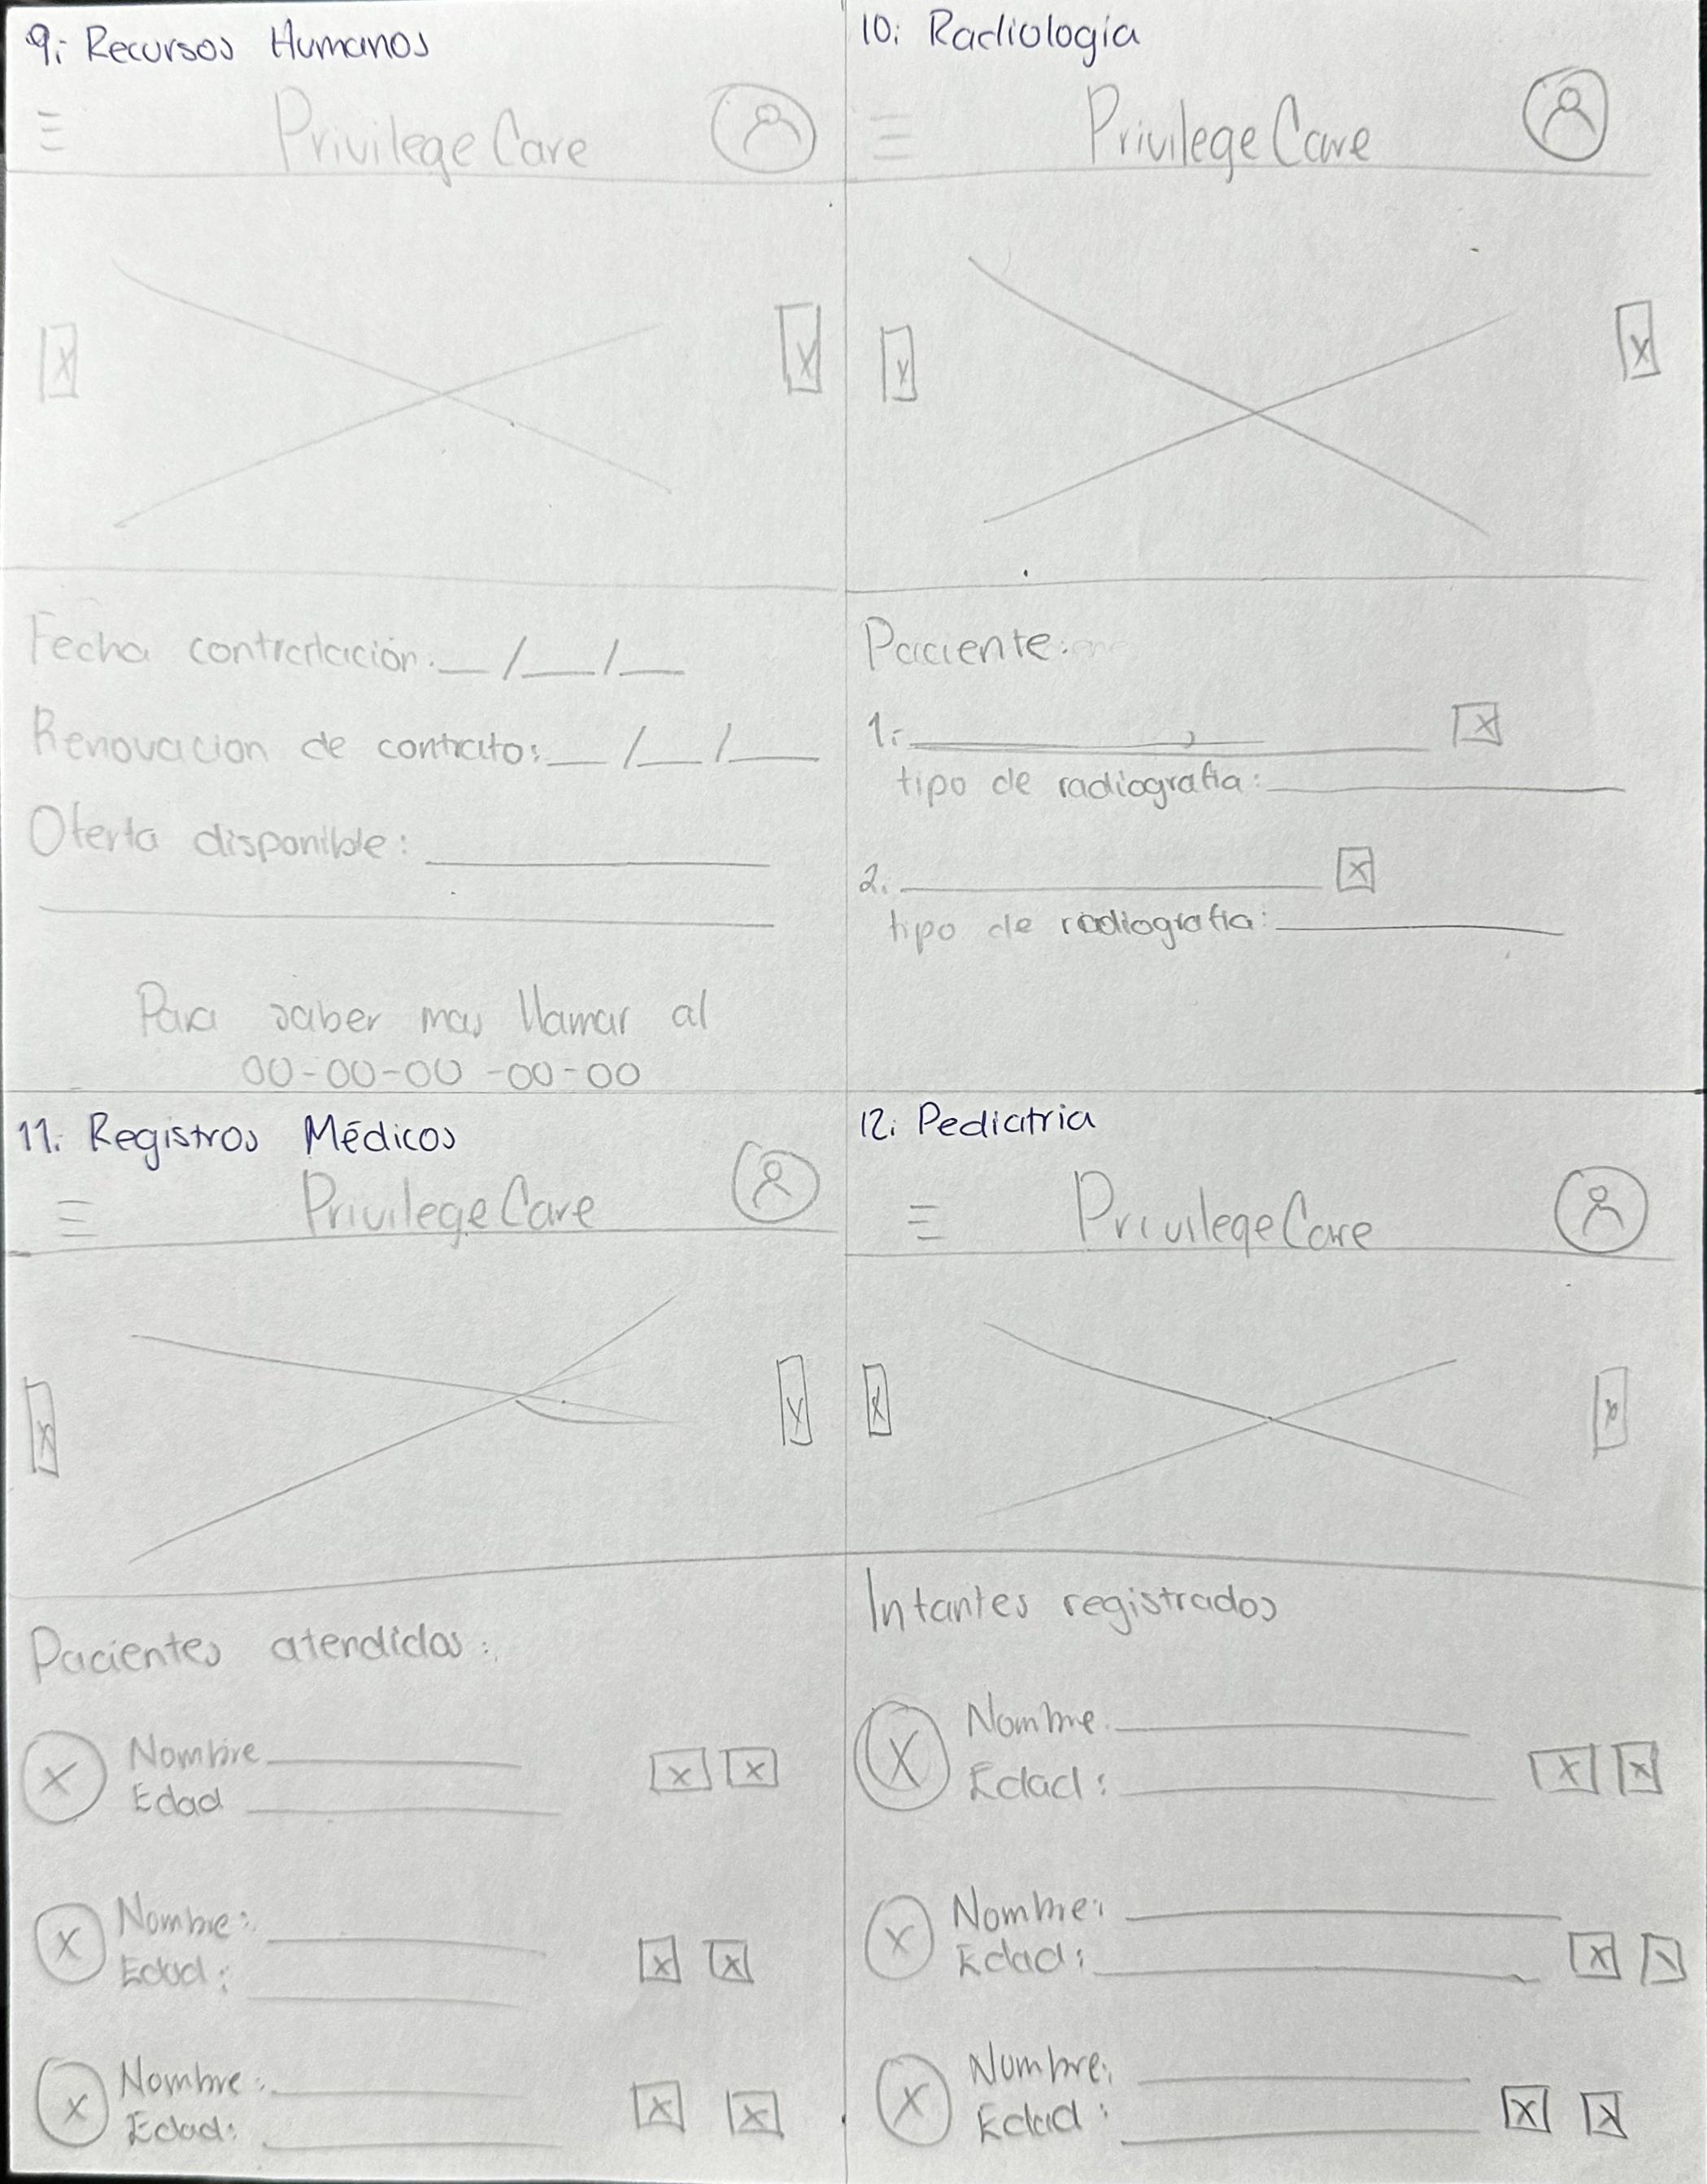 9. Recursos Humanos
Privilege Care
Fecha contratación: __/__/__
Renovacion de contrato: __/__/__
Oferta disponible: ________
Para saber mas llamar al
00-00-00-00-00
10. Radiología
Privilege Care
Paciente:
1. ________
tipo de radiografia: ________
2. ________
tipo de radiografia: ________
11. Registros Médicos
Privilege Care
Pacientes atendidos:
Nombre ________
Edad ________
Nombre: ________
Edad: ________
Nombre: ________
Edad: ________
12. Pediatria
Privilege Care
Infantes registrados
Nombre: ________
Edad: ________
Nombre: ________
Edad: ________
Nombre: ________
Edad: ________